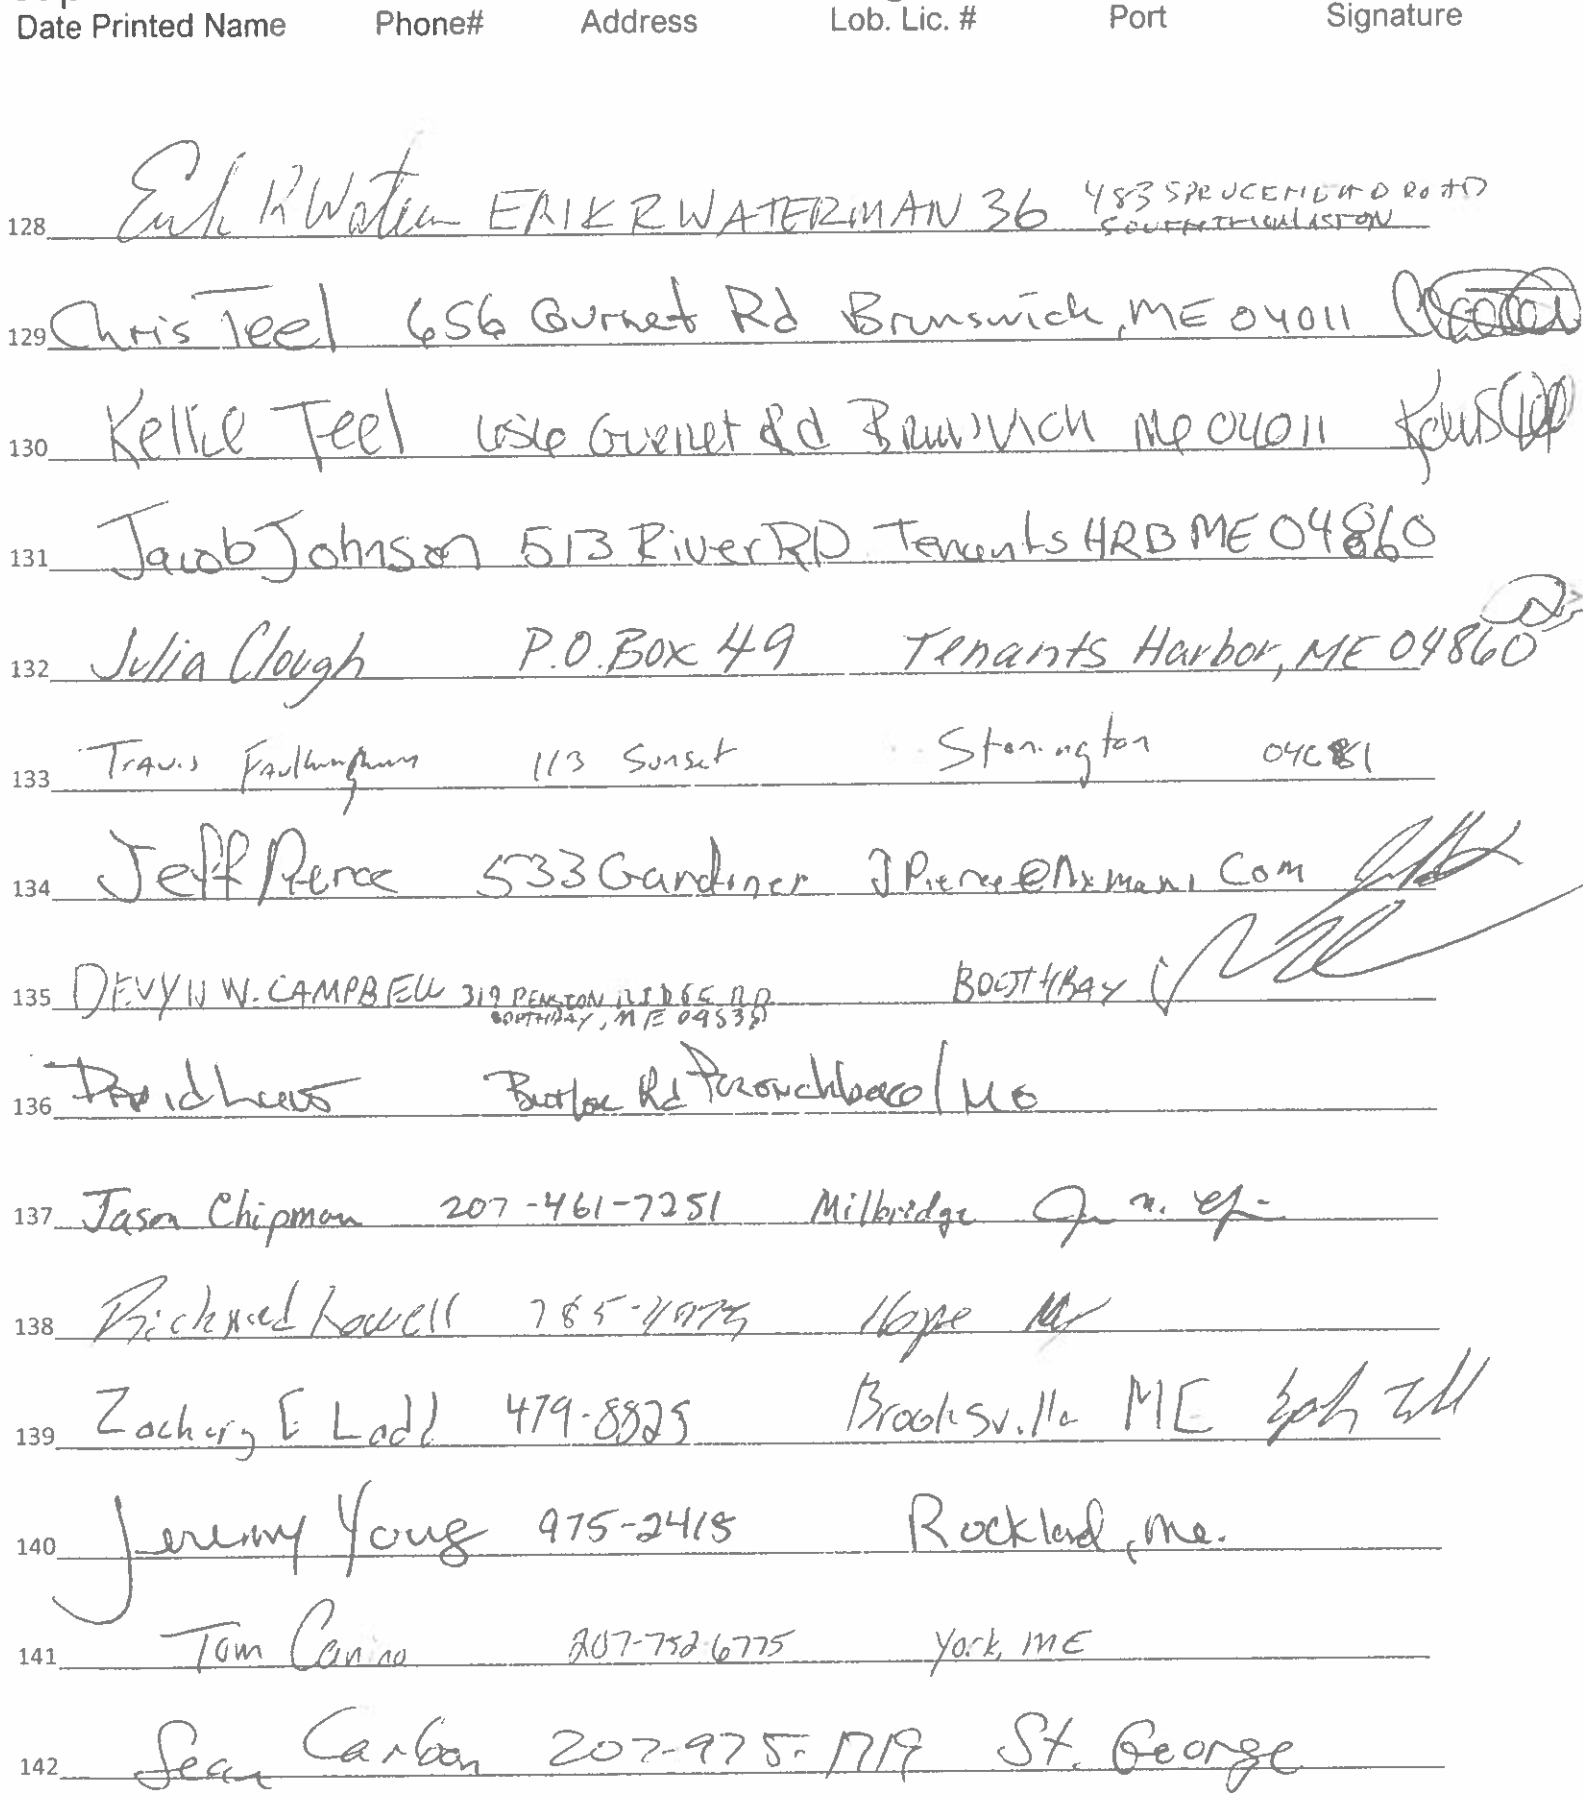 Date Printed Name Phone# Address Lob. Lic. # Port Signature
128 ERIK R WATERMAN 36 483 SPRUCEHEAD ROAD
129 Chris Teel 656 Gurnet Rd Brunswick, ME 04011
130 Kellie Teel 656 Gurnet Rd Brunswick Me 04011
131 Jacob Johnson 513 River RD Tenants HRB ME 04860
132 Julia Clough P.O. Box 49 Tenants Harbor, ME 04860
133 Travis Faulkingham 113 Sunset Stonington
134 Jeff Pierce 533 Gardiner
135 DEVYN W. CAMPBELL 319 RIDGE RD BOOTHBAY
BOOTHBAY, ME
136 David
137 Jason Chipman 207-461-7251 Milbridge
138 Richard Lowell Hope
139 Zachary E Ladd 479-8825 Brooksville ME
140 Jeremy Young 975-2415 Rockland, Me.
141 Tom 207-752-6775 York, ME
142 Sean 207-975-1719 St. George